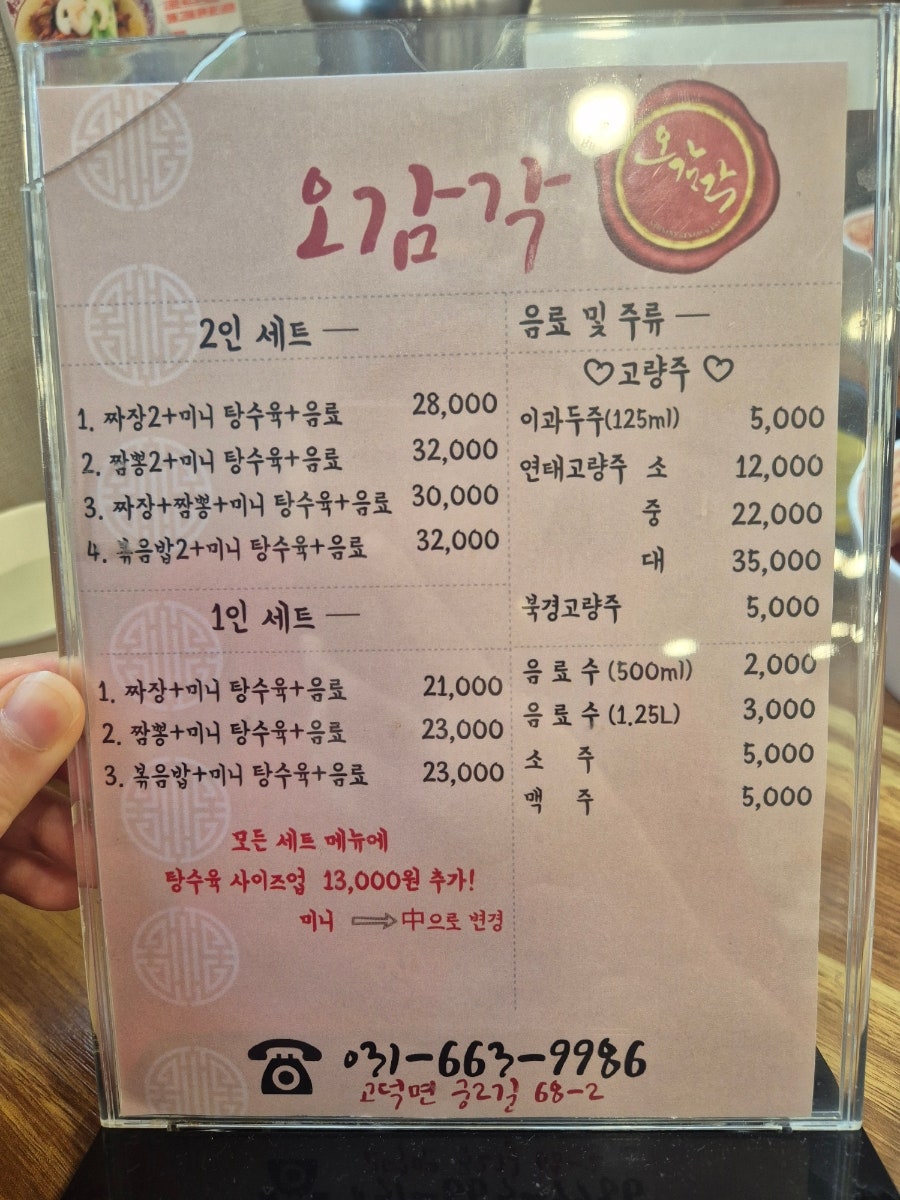 오감각
오감각
2인 세트 —
1. 짜장2+미니 탕수육+음료 28,000
2. 짬뽕2+미니 탕수육+음료 32,000
3. 짜장+짬뽕+미니 탕수육+음료 30,000
4. 볶음밥2+미니 탕수육+음료 32,000
1인 세트 —
1. 짜장+미니 탕수육+음료 21,000
2. 짬뽕+미니 탕수육+음료 23,000
3. 볶음밥+미니 탕수육+음료 23,000
모든 세트 메뉴에
탕수육 사이즈업 13,000원 추가!
미니 ⇨ 中으로 변경
음료 및 주류 —
♡고량주 ♡
이과두주(125ml) 5,000
연태고량주 소 12,000
중 22,000
대 35,000
북경고량주 5,000
음 료 수 (500ml) 2,000
음 료 수 (1.25L) 3,000
소 주 5,000
맥 주 5,000
☎ 031-663-9986
고덕면 궁리길 68-2